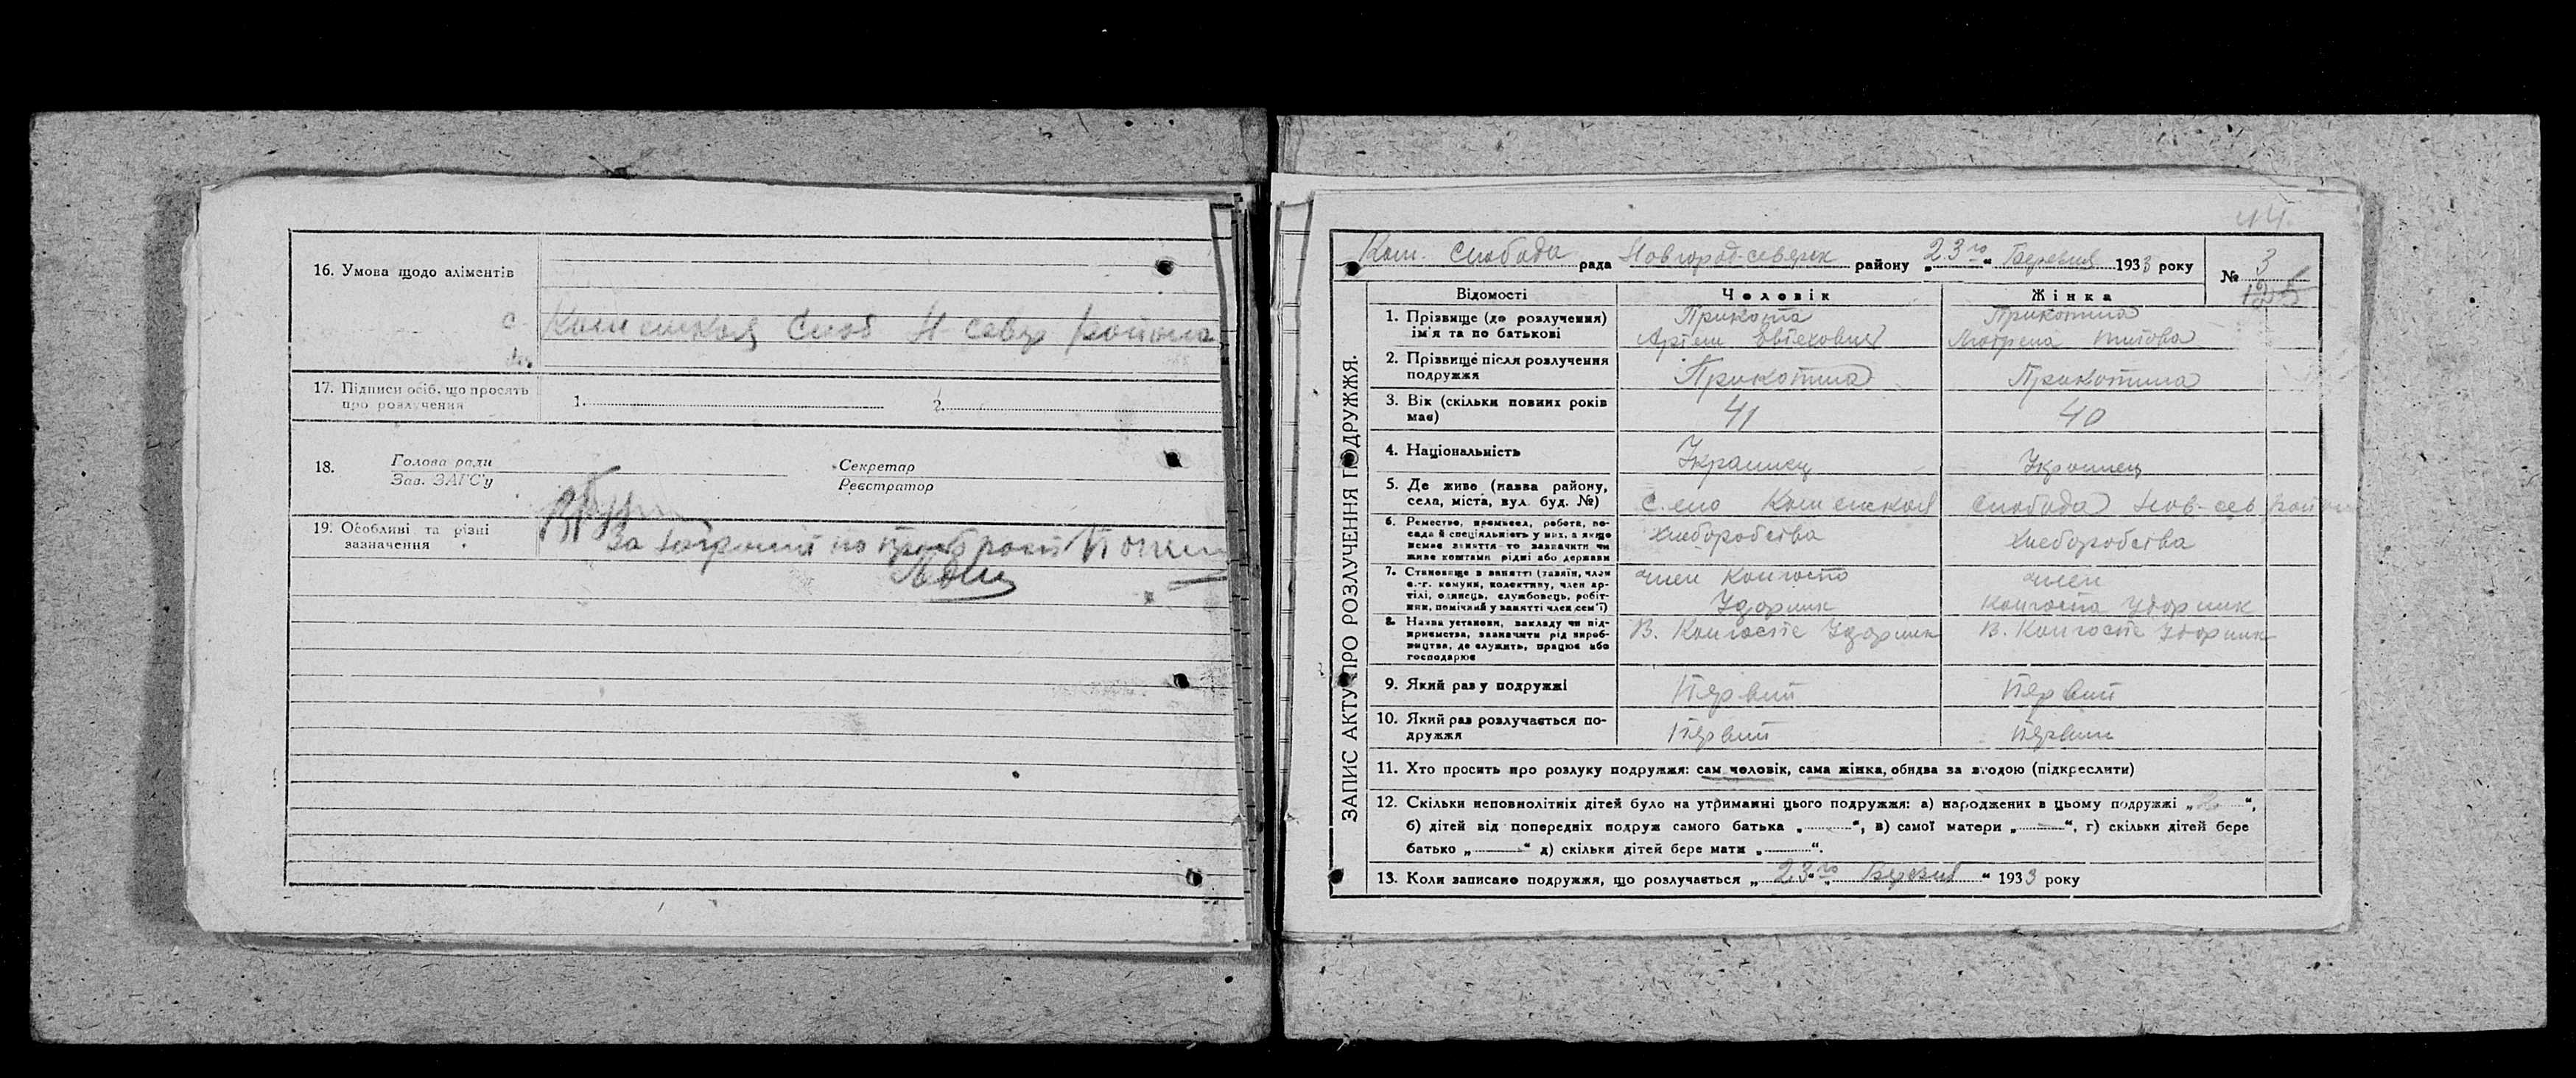 16. Умова щодо аліментів
с Каменская Слоб Н-север району
17. Підписи осіб, що просять
про розлучення
1. 2.
18. Голова ради
Зав. ЗАГС'у
Секретар
Реєстратор
19. Особливі та різні
зазначення
За
44.
Кам. Слобода рада Новгород-северск району „23го“ Березня 1933 року
№ 3
ЗАПИС АКТУ ПРО РОЗЛУЧЕННЯ ПОДРУЖЖЯ.
Відомості Чоловік Жінка
1. Прізвище (до розлучення)
ім'я та по батькові
Прикота
Артем
Прикотина
Мотрена Титова
2. Прізвище після розлучення
подружжя
Прикотина Прикотина
3. Вік (скільки повних років
має)
41 40
4. Національність
Украинец Украинец
5. Де живе (назва району,
села, міста, вул. буд. №)
Село Каменская Слобода Нов-сев район
6. Ремество, промысел, робота, по-
сада й спеціяльність у них, а якщо
немає заняття то зазначити чи
живе коштами рідні або держави
Хлеборобства Хлеборобства
7. Становище в занятті (хазяїн, член
с.-г. комуни, колективу, член ар-
тілі, одинець, службовець, робіт-
ник, помічний у занятті член сем'ї)
член Колгоспа
Ударник
член
Колгоспа Ударник
8. Назва установи, закладу чи під-
приємства, зазначити рід вироб-
ництва, де служить, працює або
господарює
В. Колгоспе Ударник В. Колгоспе Ударник
9. Який раз у подружжі
Первий Первий
10. Який раз розлучається по-
дружжя
Первий Первий
11. Хто просить про розлуку подружжя: сам чоловік, сама жінка, обидва за згодою (підкреслити)
12. Скільки неповнолітніх дітей було на утриманні цього подружжя: а) народжених в цьому подружжі „ “,
б) дітей від попередніх подруж самого батька „ “, в) самої матери „ “, г) скільки дітей бере
батько „ “ д) скільки дітей бере мати „ “.
13. Коли записано подружжя, що розлучається „23го“ Березня 1933 року